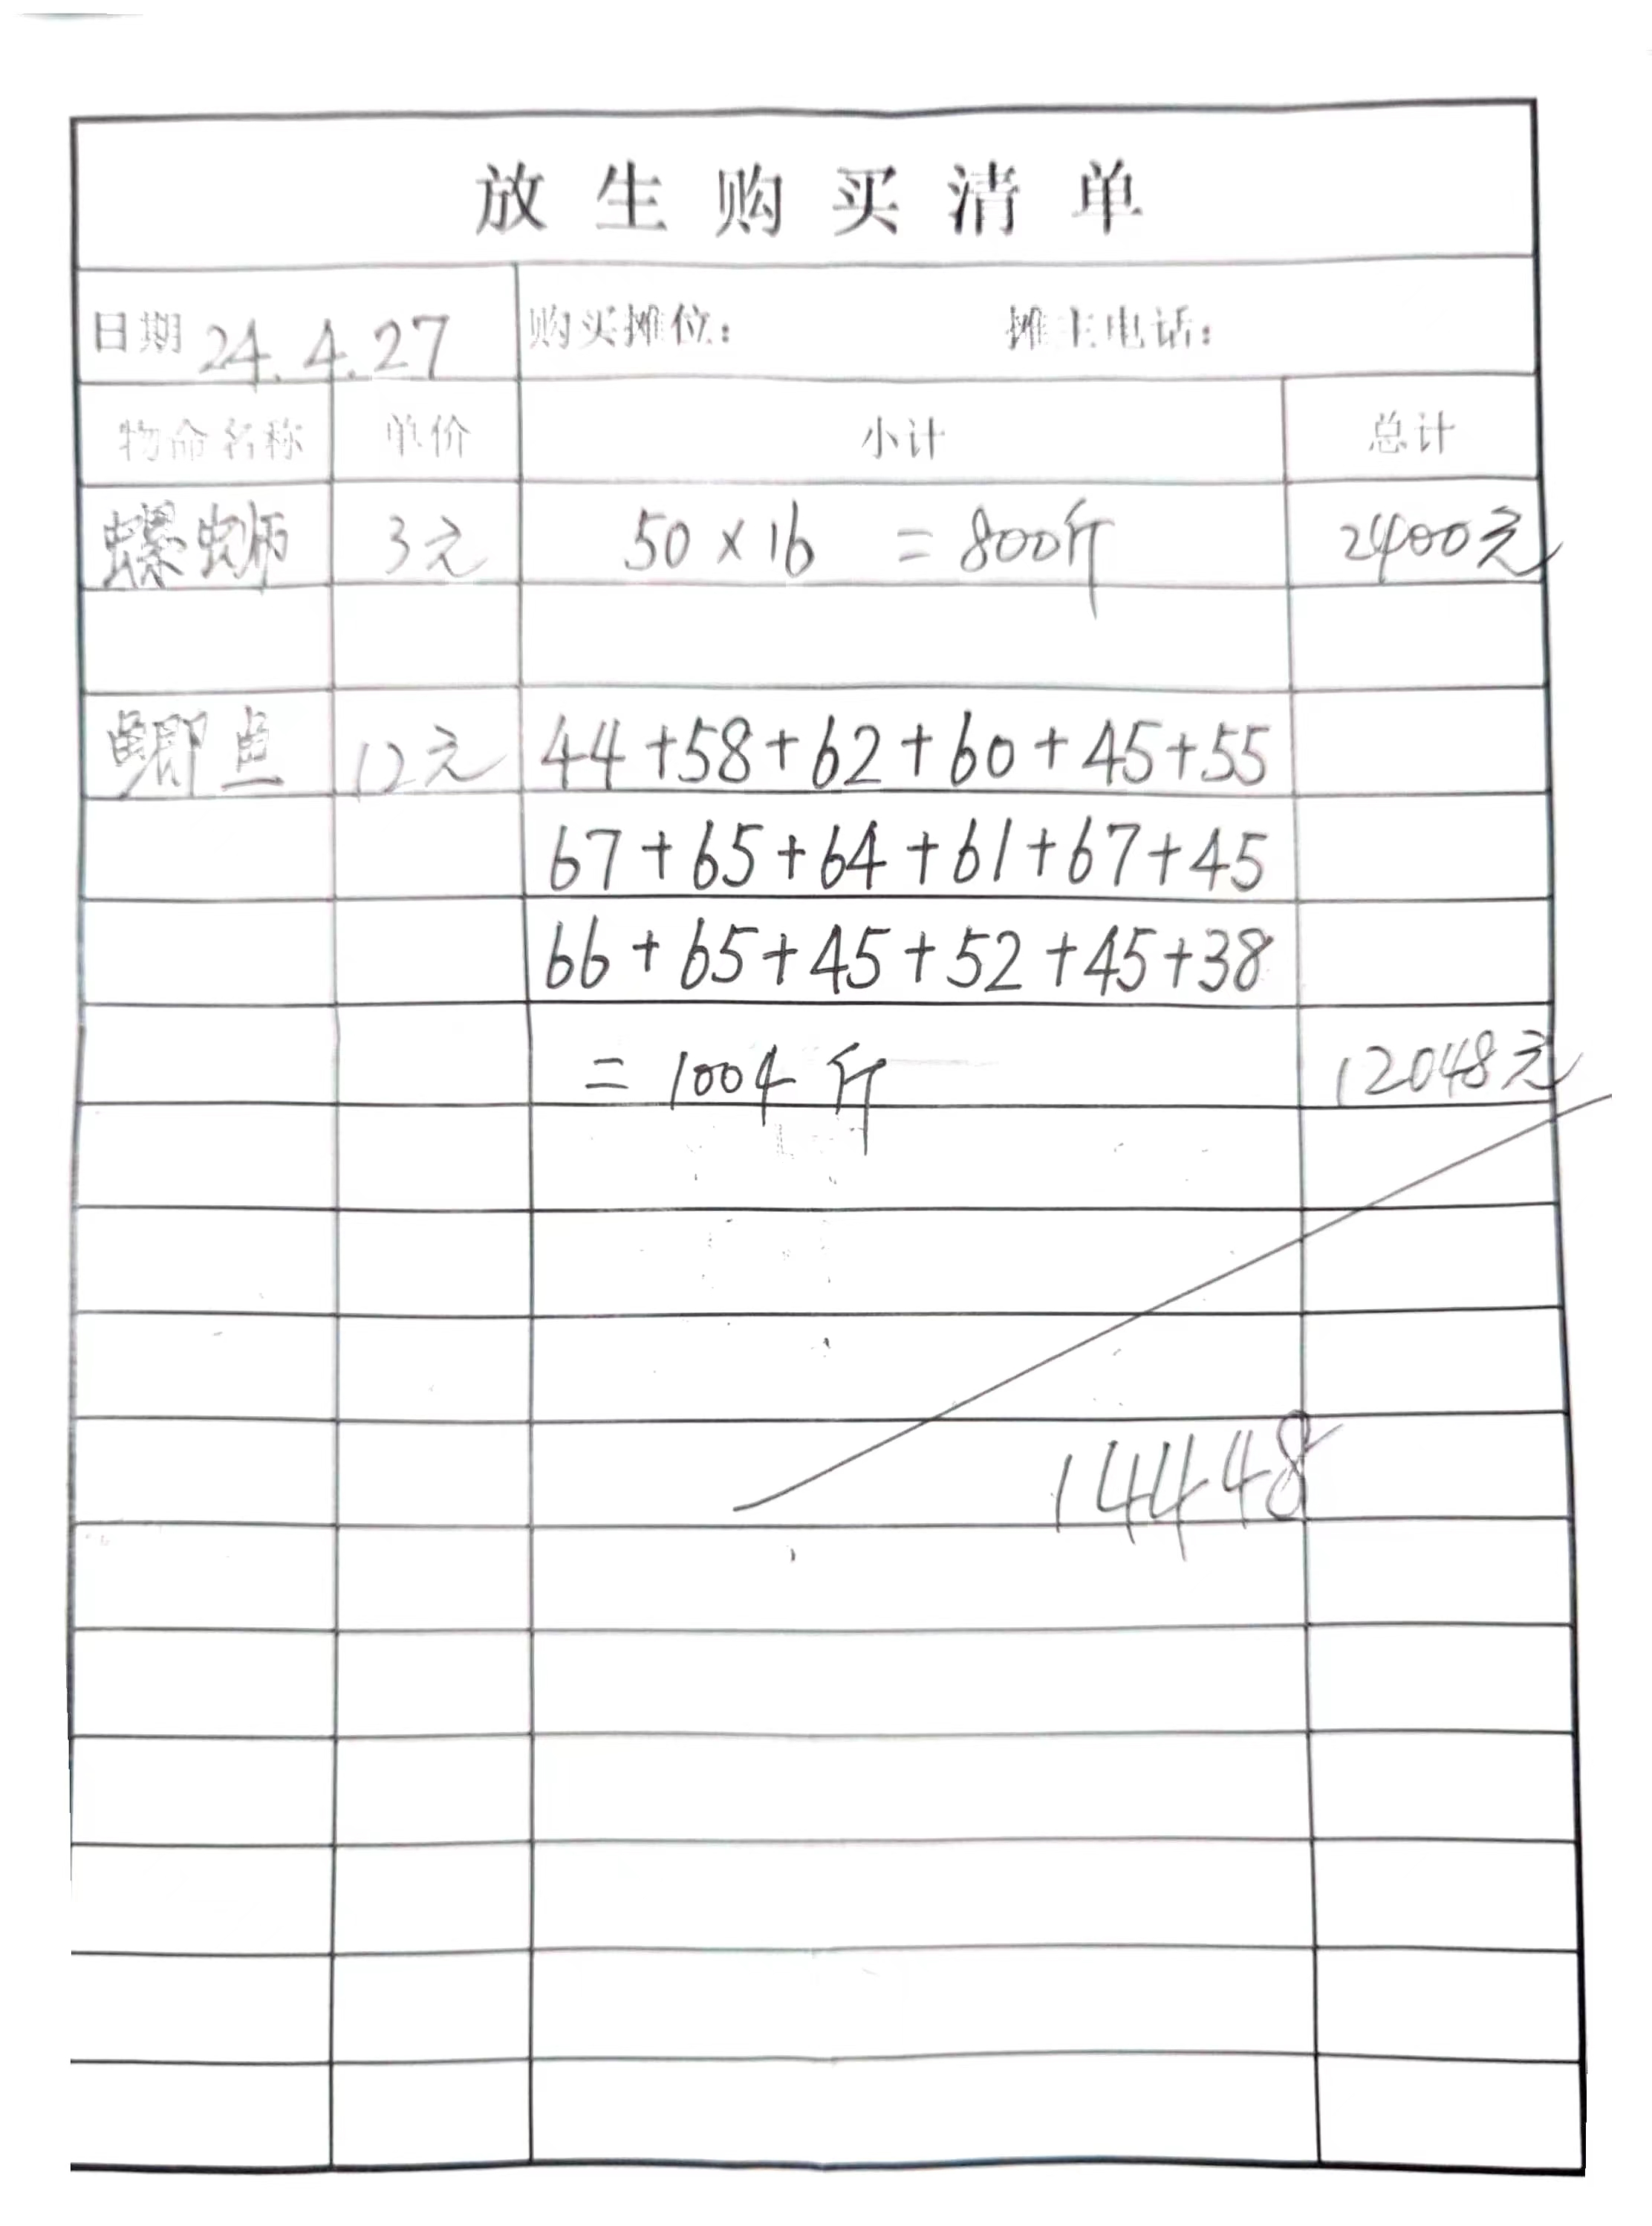 放生购买清单
日期 24.4.27 购买摊位： 摊主电话：
物命名称 单价 小计 总计
螺蛳 3元 50×16 =800斤 2400元
鲫鱼 12元 44+58+62+60+45+55
67+65+64+61+67+45
66+65+45+52+45+38
=1004斤 12048元
14448